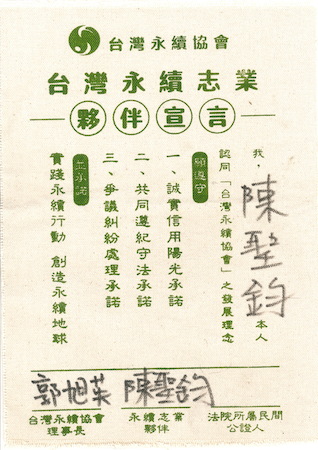 台灣永續協會
台灣永續志業
夥伴宣言
我，陳聖鈞 本人
認同「台灣永續協會」之發展理念
願遵守
一、誠實信用陽光承諾
二、共同遵紀守法承諾
三、爭議糾紛處理承諾
並承諾
實踐永續行動 創造永續地球
郭旭英 陳聖鈞
台灣永續協會
理事長
永續志業
夥伴
法院所屬民間
公證人